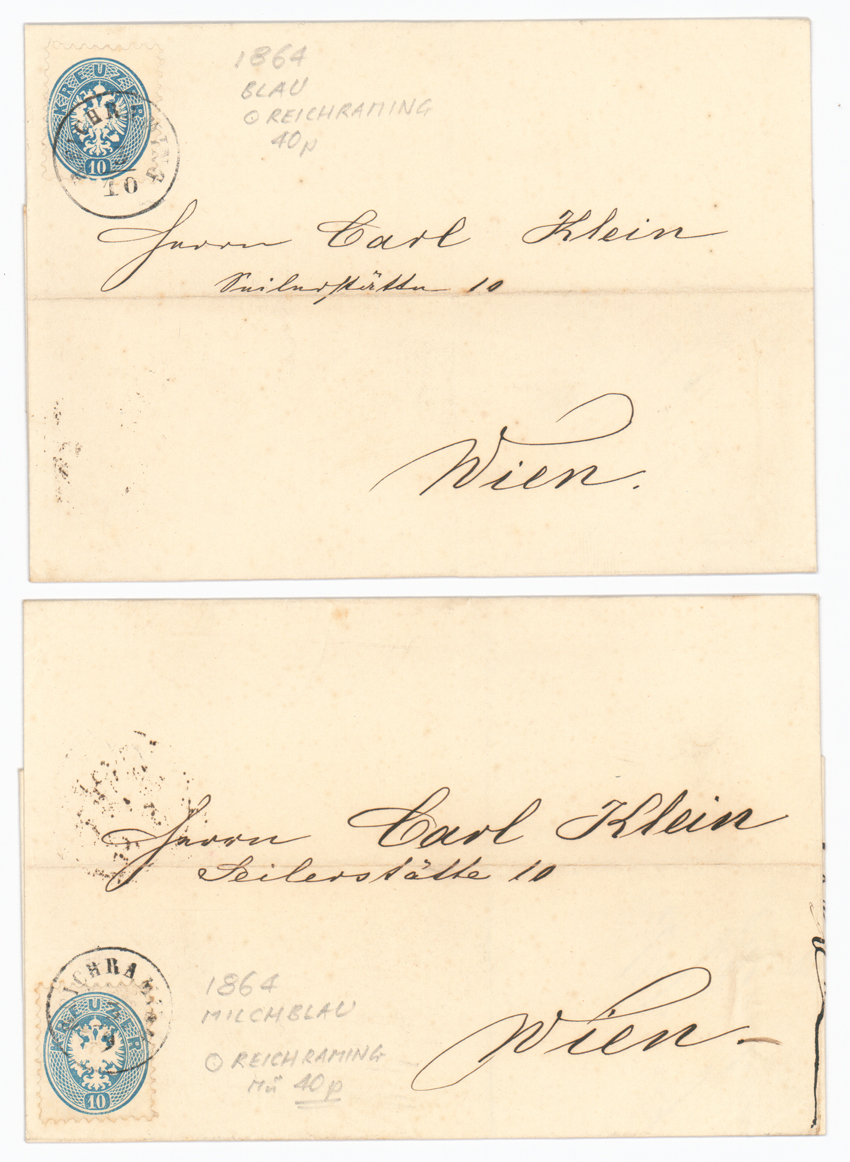 KREUZER
10
REICHRAMING
10
1864
BLAU
⊙ REICHRAMING
40p
Herrn Carl Klein
Seilerstätte 10
Wien.
Herrn Carl Klein
Seilerstätte 10
ICHRAMI
KREUZER
10
1864
MILCHBLAU
⊙ REICHRAMING
Mü 40p
Wien